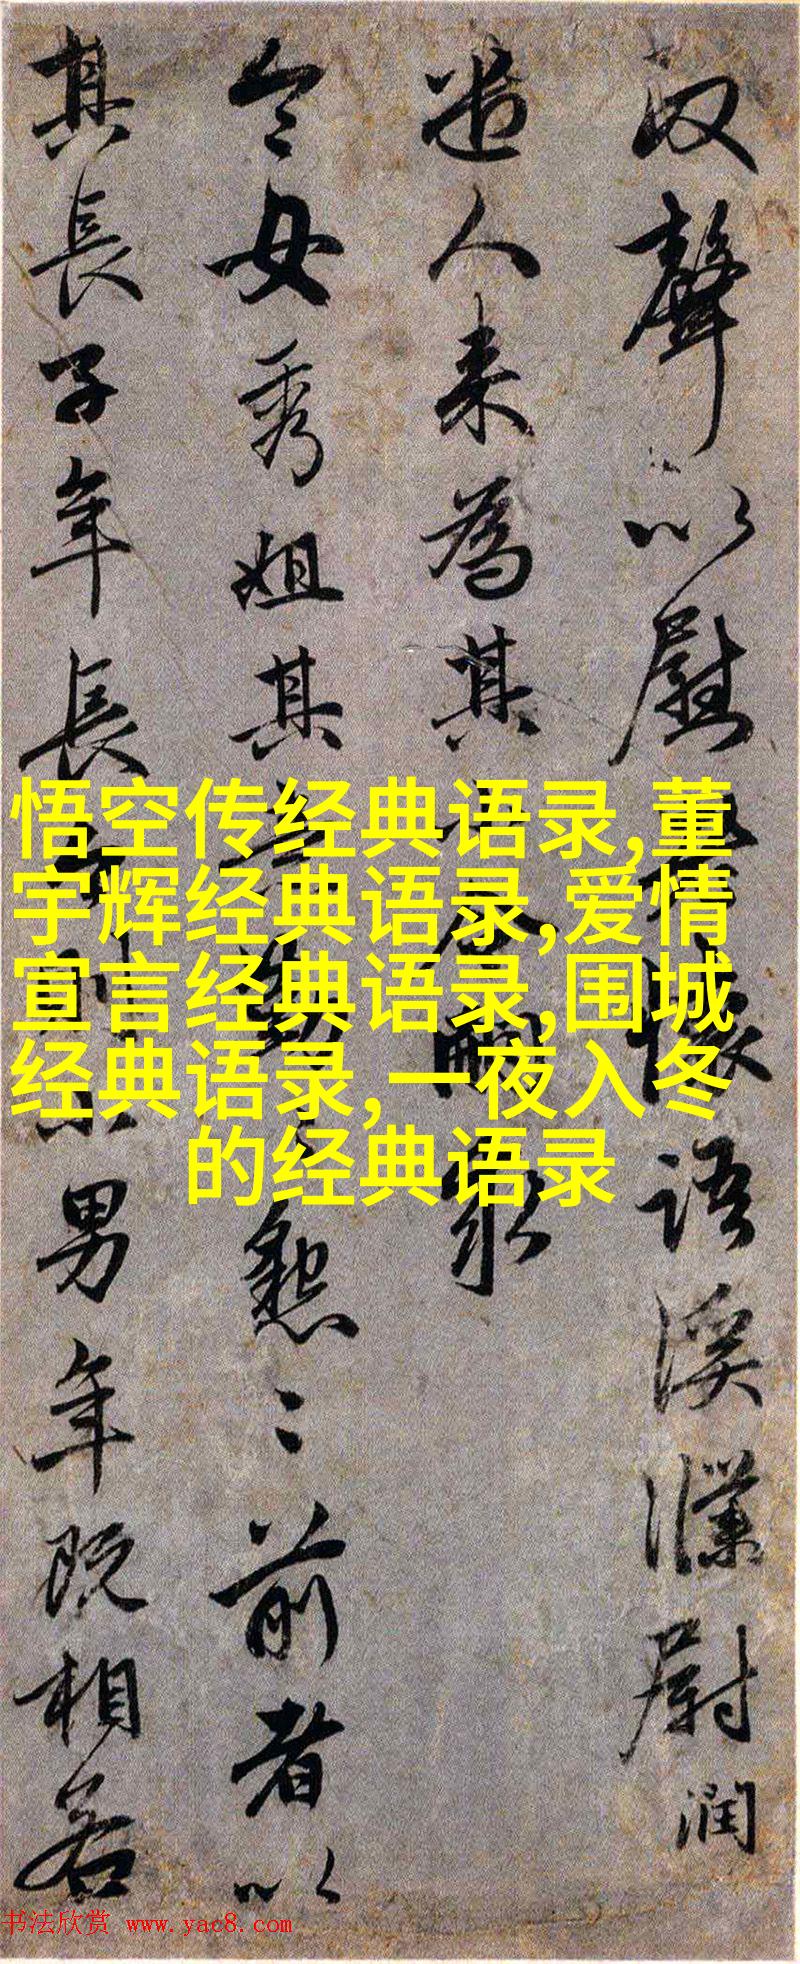 聲以慰懷語溪濮尉潤
遣人来為其令嗣求
令女秀姐其勤懇〻前者以
其長子年長小男年既相若
悟空传经典语录,董
宇辉经典语录,爱情
宣言经典语录,围城
经典语录,一夜入冬
的经典语录
书法欣赏 www.yac8.com